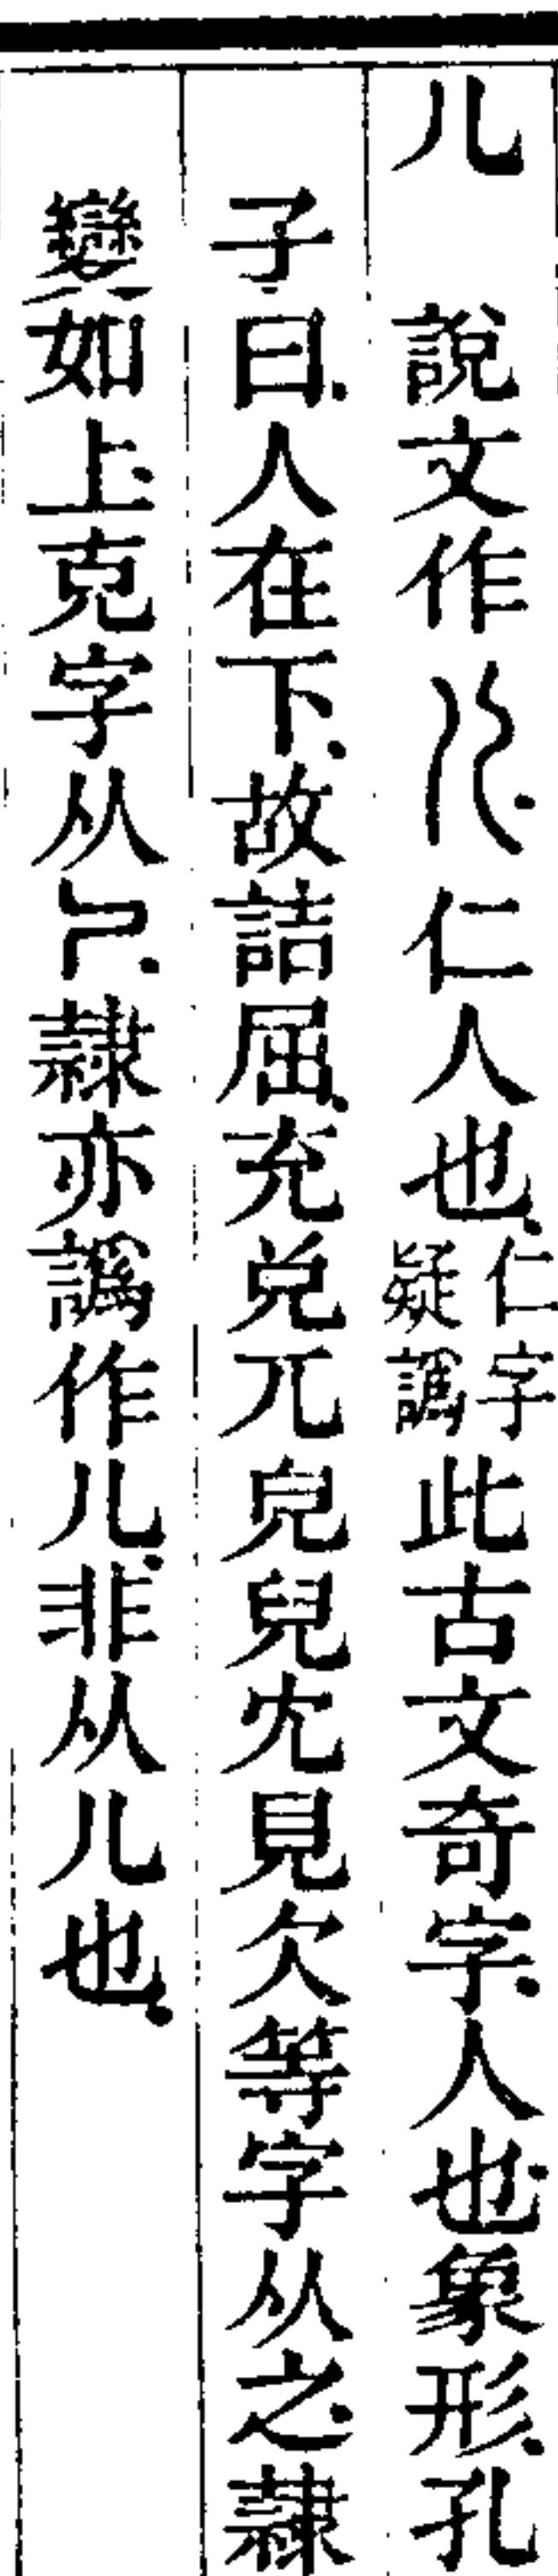 儿　說文作𠒆仁人也仁字疑譌此古文奇字人也象形孔
子曰人在下故詰屈充兌兀皃兒冘見欠等字从之隸
變如上克字从𠂆隸亦譌作儿非从儿也